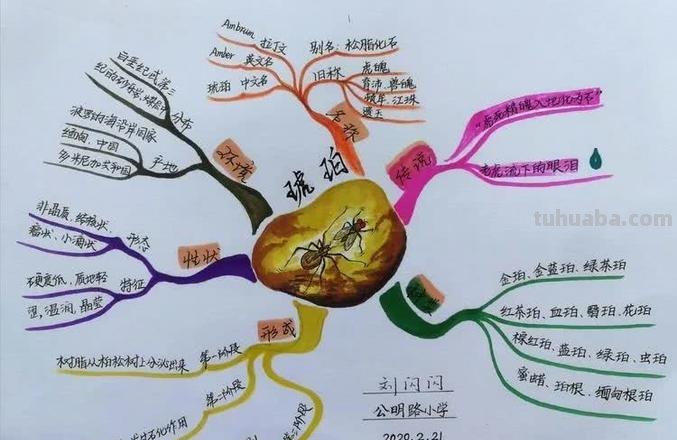 琥珀
名称
Ambrum 拉丁文
Amber 英文名
琥珀 中文名
别名：松脂化石
旧称
虎魄
育沛、兽魄
顿牟、江珠
遗玉
传说
"虎死精魄入地化为石"
老虎流下的眼泪
tuhuaba.com
金珀、金蓝珀、绿茶珀
红茶珀、血珀、翳珀、花珀
棕红珀、蓝珀、绿珀、虫珀
蜜蜡、珀根、缅甸根珀
环境
分布
白垩纪或第三
产地
波罗的海沿岸国家
缅甸、中国
多米尼加共和国
性状
形态
非晶质、结核状、
瘤状、小滴状
特征
硬度低、质地轻
温润、晶莹
形成
第一阶段
树脂从柏松树上分泌出来
第二阶段
石化作用
第三阶段
刘闪闪
公明路小学
2020.2.21